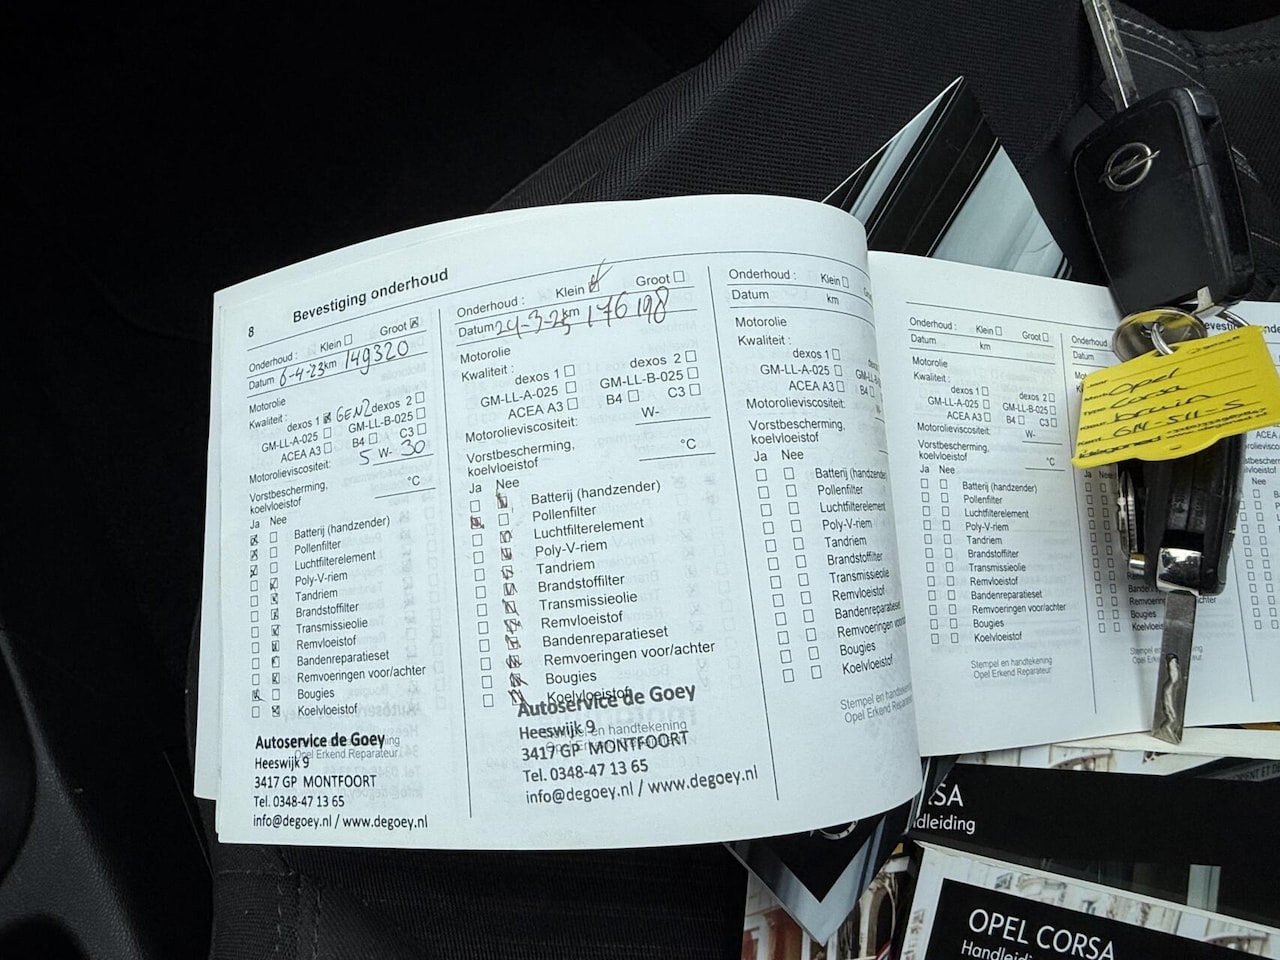 8 Bevestiging onderhoud
Onderhoud : Klein Groot
Datum 6-4-23 km 149320
Motorolie
Kwaliteit : dexos 1 GEN2 dexos 2
GM-LL-A-025 GM-LL-B-025
ACEA A3 B4 C3
Motorolieviscositeit: 5 W- 30
Vorstbescherming,
koelvloeistof °C
Ja Nee
Batterij (handzender)
Pollenfilter
Luchtfilterelement
Poly-V-riem
Tandriem
Brandstoffilter
Transmissieolie
Remvloeistof
Bandenreparatieset
Remvoeringen voor/achter
Bougies
Koelvloeistof
Stempel en handtekening
Opel Erkend Reparateur
Autoservice de Goey
Heeswijk 9
3417 GP MONTFOORT
Tel. 0348-47 13 65
info@degoey.nl / www.degoey.nl
Onderhoud : Klein Groot
Datum 24-3-25 km 176198
Motorolie
Kwaliteit : dexos 1 dexos 2
GM-LL-A-025 GM-LL-B-025
ACEA A3 B4 C3
Motorolieviscositeit: W-
Vorstbescherming,
koelvloeistof °C
Ja Nee
Batterij (handzender)
Pollenfilter
Luchtfilterelement
Poly-V-riem
Tandriem
Brandstoffilter
Transmissieolie
Remvloeistof
Bandenreparatieset
Remvoeringen voor/achter
Bougies
Koelvloeistof
Autoservice de Goey
Heeswijk 9
Stempel en handtekening
3417 GP MONTFOORT
Tel. 0348-47 13 65
info@degoey.nl / www.degoey.nl
Onderhoud : Klein
Datum km
Motorolie
Kwaliteit :
dexos 1
GM-LL-A-025
ACEA A3 B4
Motorolieviscositeit:
Vorstbescherming,
koelvloeistof
Ja Nee
Batterij (handzender)
Pollenfilter
Luchtfilterelement
Poly-V-riem
Tandriem
Brandstoffilter
Transmissieolie
Remvloeistof
Bandenreparatieset
Remvoeringen
Bougies
Koelvloeistof
Stempel en handtekening
Opel Erkend Reparateur
Onderhoud : Klein Groot
Datum km
Motorolie
Kwaliteit :
dexos 1 dexos 2
GM-LL-A-025 GM-LL-B-025
ACEA A3 B4 C3
Motorolieviscositeit: W-
Vorstbescherming,
koelvloeistof °C
Ja Nee
Batterij (handzender)
Pollenfilter
Luchtfilterelement
Poly-V-riem
Tandriem
Brandstoffilter
Transmissieolie
Remvloeistof
Bandenreparatieset
Remvoeringen voor/achter
Bougies
Koelvloeistof
Stempel en handtekening
Opel Erkend Reparateur
Opel
Corsa
bruin
OPEL CORSA